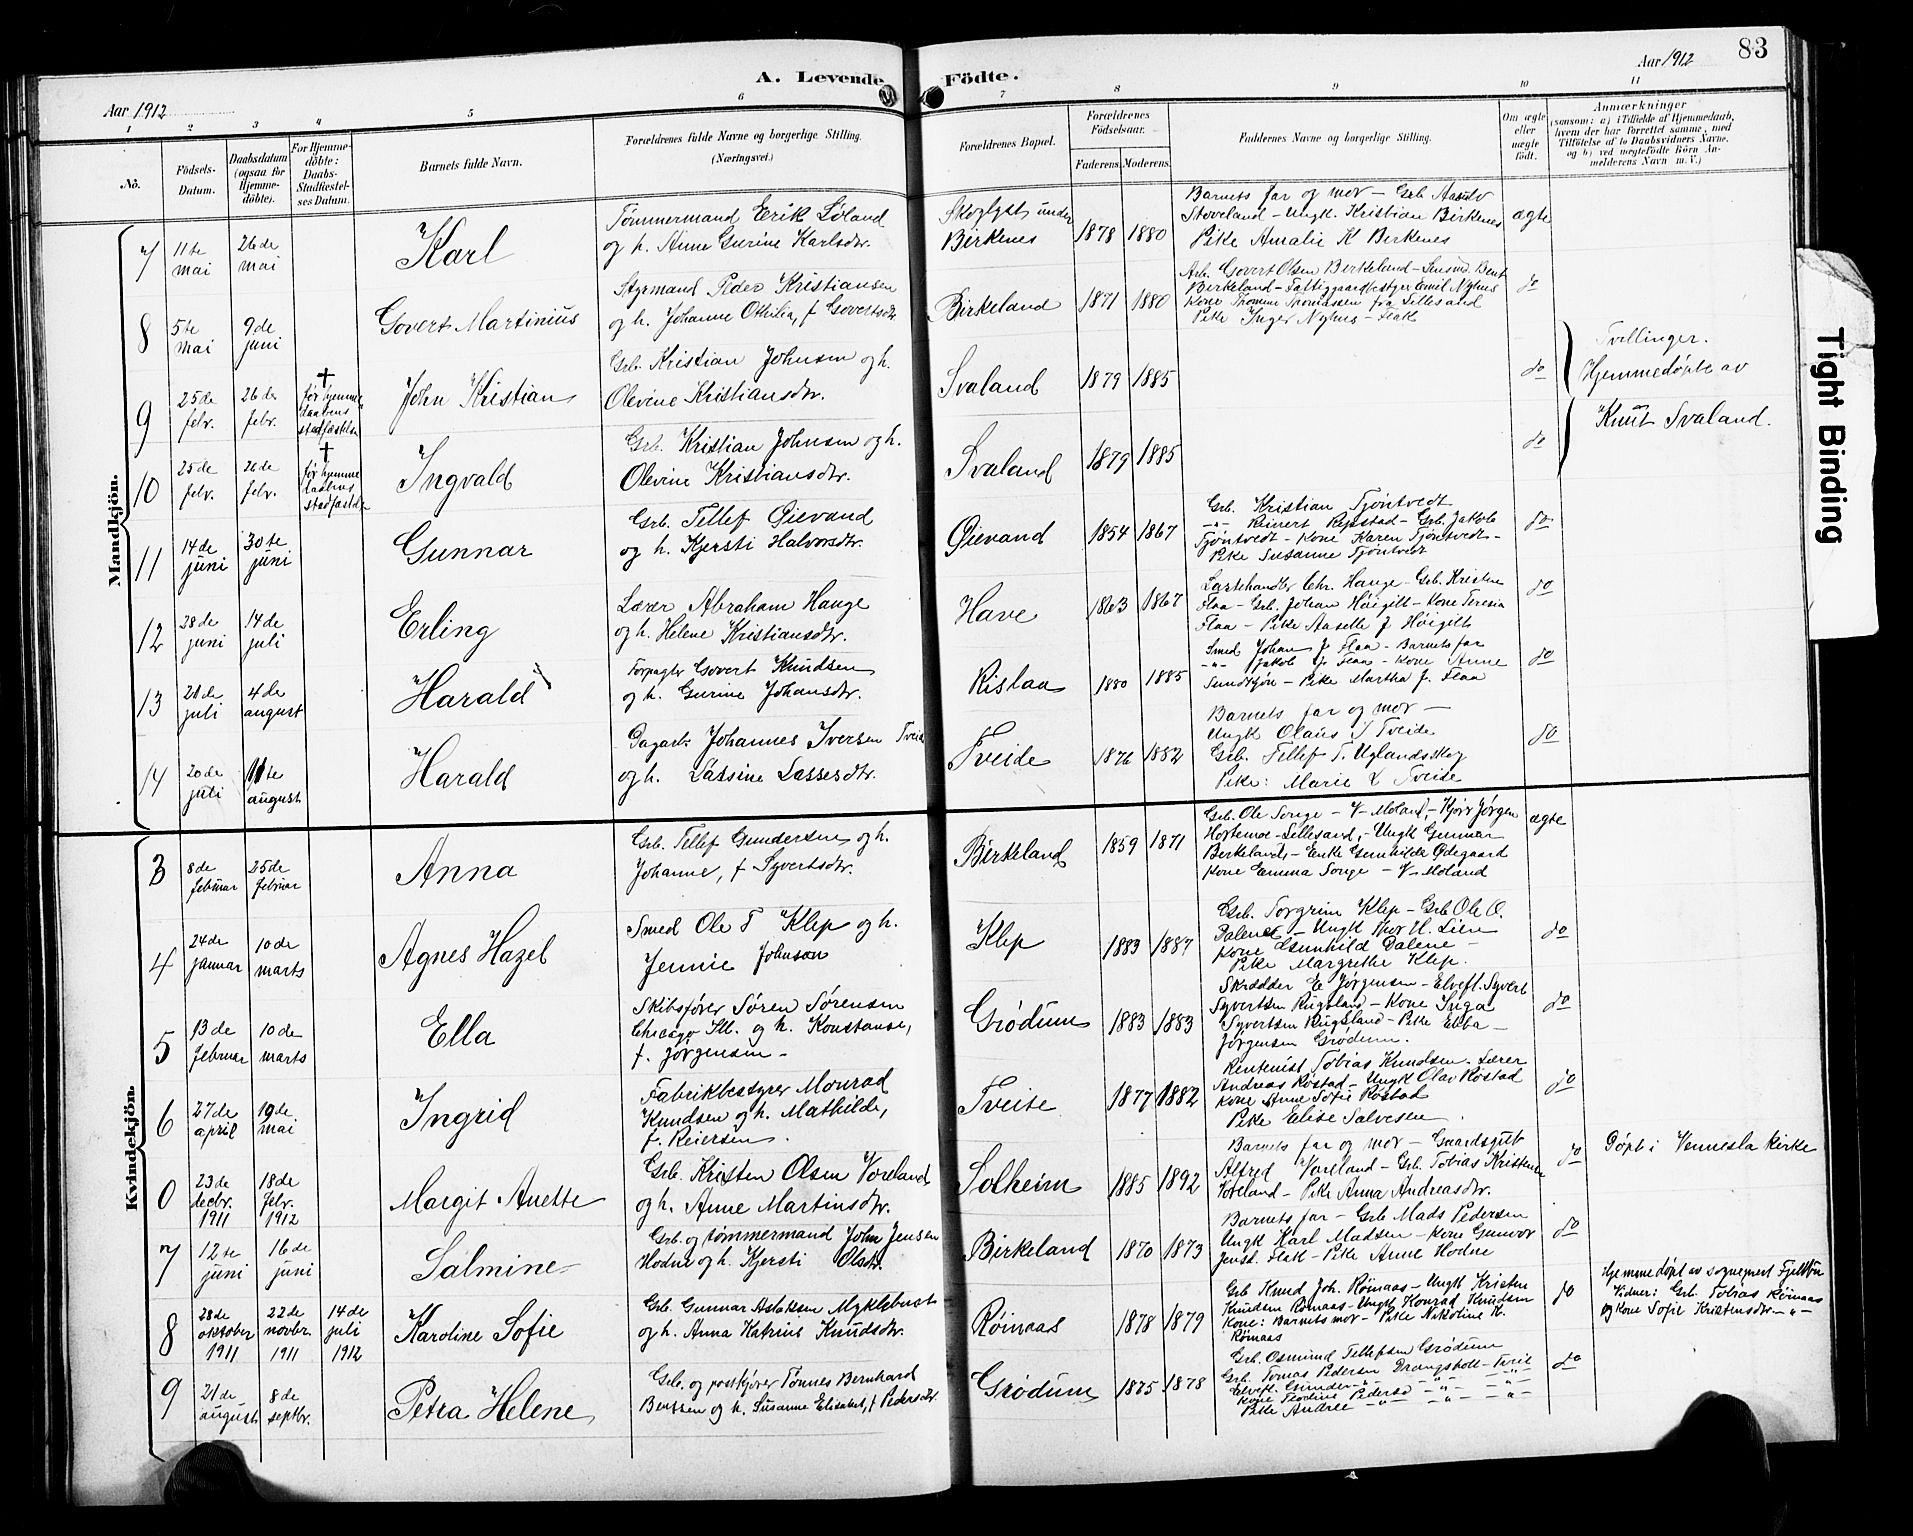 83
Aar 1912
A. Levende
Födte.
Aar 1912
1 2 3 4 5 6 7 8 9 10 11
No.
Födsels-
Datum.
Daabsdatum
(ogsaa for
Hjemme-
döbte).
For Hjemme-
döbte:
Daabs-
Stadfæstel-
ses Datum.
Barnets fulde Navn.
Forældrenes fulde Navne og borgerlige Stilling.
(Næringsvei.)
Forældrenes Bopæl.
Forældrenes
Födselsaar.
Faderens.
Moderens.
Faddernes Navne og borgerlige Stilling.
Om ægte
eller
uægte
födt.
Anmærkninger
(saasom: a) i Tilfælde af Hjemmedaab,
hvem der har forrettet samme, med
Tilföielse af to Daabsvidners Navne,
og b) ved uægtefödte Börn An-
melderens Navn m. V.)
Mandkjön.
7
11te
mai
26de
mai
Karl
Tømmermand Erik Løland
og h. Anne Gurine Karlsdtr.
Skoglyst under
Birkenes
1878 1880
Barnets far og mor – Grb. Aasulv
Stoveland – Ungk. Kristian Birkenes
Pike Amalie K Birkenes
ægte
8
5te
mai
9de
juni
Govert Martinius
Styrmand Peder Kristiansen
og h. Johanne Othilia, f Govertsdtr
Birkeland
1871 1880
Arb. Govert Olsen Birkeland – Smsmd. Bent
Birkeland – Fattiggaardbestyer Emil Nyhus
Kone Thomine Thomassen fra Lillesand
Pike Inger Nyhus – Flak
do
9
25de
febr.
26de
febr.
†
før hjemme
daabens
stadfæstelse
John Kristian
Grb. Kristian Johnsen og h.
Olevine Kristiansdtr.
Svaland
1879 1885
do
Tvillinger.
Hjemmedøpte av
Knut Svaland.
10
25de
febr.
26de
febr.
†
før hjemme
daabens
stadfæstelse
Ingvald
Grb. Kristian Johnsen og h.
Olevine Kristiansdtr.
Svaland
1879 1885
do
11
14de
juni
30te
juni
Gunnar
Grb. Tellef Øievand
og h. Kjersti Halvorsdtr.
Øievand
1854 1867
Grb. Kristian Tjøntvedt
-"- Reinert Repstad – Grb. Jakob
Tjøntvedt – Kone Karen Tjøntvedt –
Pike Susanne Tjøntvedt
do
12
28de
juni
14de
juli
Erling
Lærer Abraham Hauge
og h. Helene Kristiansdtr.
Have
1863 1867
Lasthandler Chr. Hauge – Grb. Kristen
Flaa – Grb. Johan Høigilt – Kone Teresia
Flaa – Pike Aaselle J Høigilt
do
13
21de
juli
4de
august
Harald
Forpagter Govert Knudsen
og h. Gurine Johansdtr.
Rislaa
1880 1885
Smed Johan J Flaa – Barnets far
-"- Jakob J. Flaa – Kone Anne
Sundtjøn – Pike Martha J. Flaa
do
14
20de
juli
11te
august
Harald
Dagarb. Johannes Iversen Tveide
og h. Lassine Lassesdtr.
Tveide
1876 1882
Barnets far og mor –
Ungk Olaus I Tveide
Grb. Tellef T. Uglandsskog
Pike: Marie L Tveide
do
Kvindekjön.
3
8de
februar
25de
februar
Anna
Grb. Tellef Gundersen og h.
Johanne, f Syvertsdtr.
Birkeland
1859 1871
Grb. Ole Songe – V-Moland, – Kjør Jørgen
Hortemoe – Lillesand, – Ungk Gunnar
Birkeland, – Enke Gunhilde Ødegaard
Kone Emma Songe – V-Moland
ægte
4
24de
januar
10de
marts
Agnes Hazel
Smed Ole T Klep og h.
Jennie Johnson
Klep
1883 1887
Grb. Torgrim Klep – Grb Ole O.
Dalene – Ungk Thor H. Lien
Kone Gunhild Dalene –
Pike Margrethe Klep.
do
5
13de
februar
10de
marts
Ella
Skibsfører Søren Sørensen
Chicago Ill. og h. Konstanse,
f. Jørgensen –
Grødum
1883 1883
Skrædder E Jørgensen – Elvefl. Syvert
Syvertsen Rugsland – Kone Inga
Syvertsen Rugsland – Pike Ebba –
Jørgensen Grødum.
do
6
27de
april
19de
mai
Ingrid
Fabrikbestyrer Monrad
Knudsen og h. Mathilde,
f. Reiersen.
Tveite
1877 1882
Rentenist Tobias Knudsen. Lærer
Andreas Røstad – Ungk Olav Røstad
Kone Anne Sofie Røstad
Pike Elise Salvesen
do
0
23de
decbr.
1911
18de
febr.
1912
Margit Anette
Grb. Kristen Olsen Voreland
og h. Anne Martinsdtr.
Solheim
1885 1892
Barnets far og mor – Gaardsgut
Alfred Voreland – Grb. Tobias Kristensen
Voreland – Pike Anna Andreasdtr.
do
Døpt i Vennesla kirke
7
12te
juni
16de
juni
Salmine
Grb. og tømmermand John Jensen
Hodne og h. Kjersti Olsdtr.
Birkeland
1870 1873
Barnets far – Grb Mads Pedersen
Ungk Karl Madsen – Kone Gunvor
Jensd. Flak – Pike Anne Hodne
do
8
28de
oktober
1911
22de
novbr.
1911
14de
juli
1912
Karoline Sofie
Grb. Gunnar Aslaksen Myklebust
og h. Anna Katrine Knudsdtr.
Røinaas
1878 1879
Grb Knud Joh. Rømaas – Ungk Kristen
Knudsen Rømaas – Ungk Konrad Knudsen
Kone: Barnets mor – Pike Nikoline K.
Rømaas
do
Hjemmedøpt av sogneprest Fjeldbu
Vidner: Grb. Tobias Rømaas
og Kone Sofie Kristensdtr. -"-
9
21de
august
8de
septbr.
Petra Helene
Grb. og postkjører Tønnes Bernhard
Bentsen og h. Susanne Elisabet, f Pedersdtr
Grødum
1875 1878
Grb. Osmund Tellefsen Grødum
Grb. Tomas Pedersen Drangsholt – Tveit
Elvefl. Gunder -"- -"- -"-
Kone Pedersd -"- -"-
Pike Andree -"- -"- -"-
do
Tight Binding